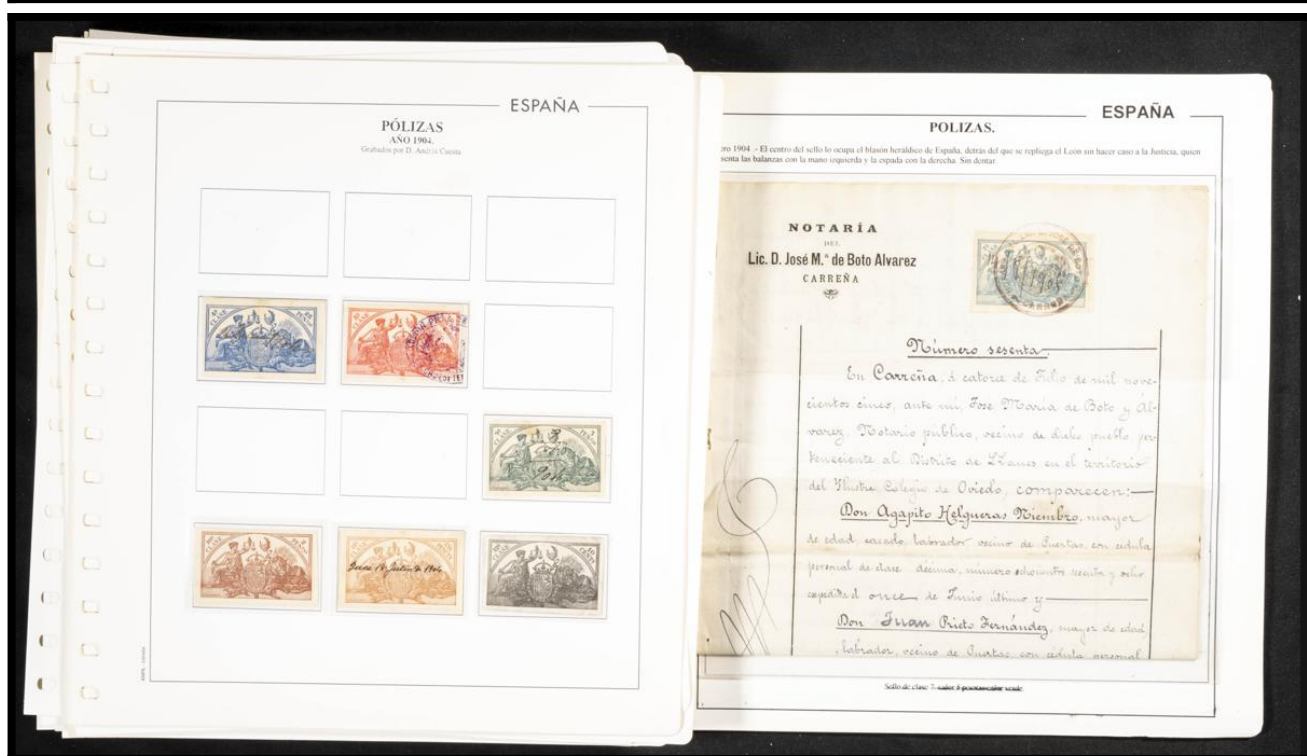 ESPAÑA
PÓLIZAS
AÑO 1904.
Grabados por D. Andrés Cuesta
ESPAÑA
POLIZAS.
ro 1904 .- El centro del sello lo ocupa el blasón heráldico de España, detrás del que se repliega el León sin hacer caso a la Justicia, quien
senta las balanzas con la mano izquierda y la espada con la derecha. Sin dentar.
NOTARÍA
DEL
Lic. D. José M.ª de Boto Alvarez
CARREÑA
Número sesenta.
En Carreña, á catorce de Julio de mil nove-
cientos cinco, ante mi, José María de Boto y Al-
varez, Notario público, vecino de dicho pueblo per-
teneciente al Distrito de Llanes en el territorio
del Ilustre Colegio de Oviedo, comparecen:
Don Agapito Helgueras Niembro, mayor
de edad, casado, labrador vecino de Puertas, con cédula
personal de clase décima, número ochocientos sesenta y ocho
expedida el once de Junio último y
Don Juan Prieto Fernández, mayor de edad,
, labrador, vecino de Puertas, con cédula personal
Sello de clase 7. valor 5 pesetas color verde